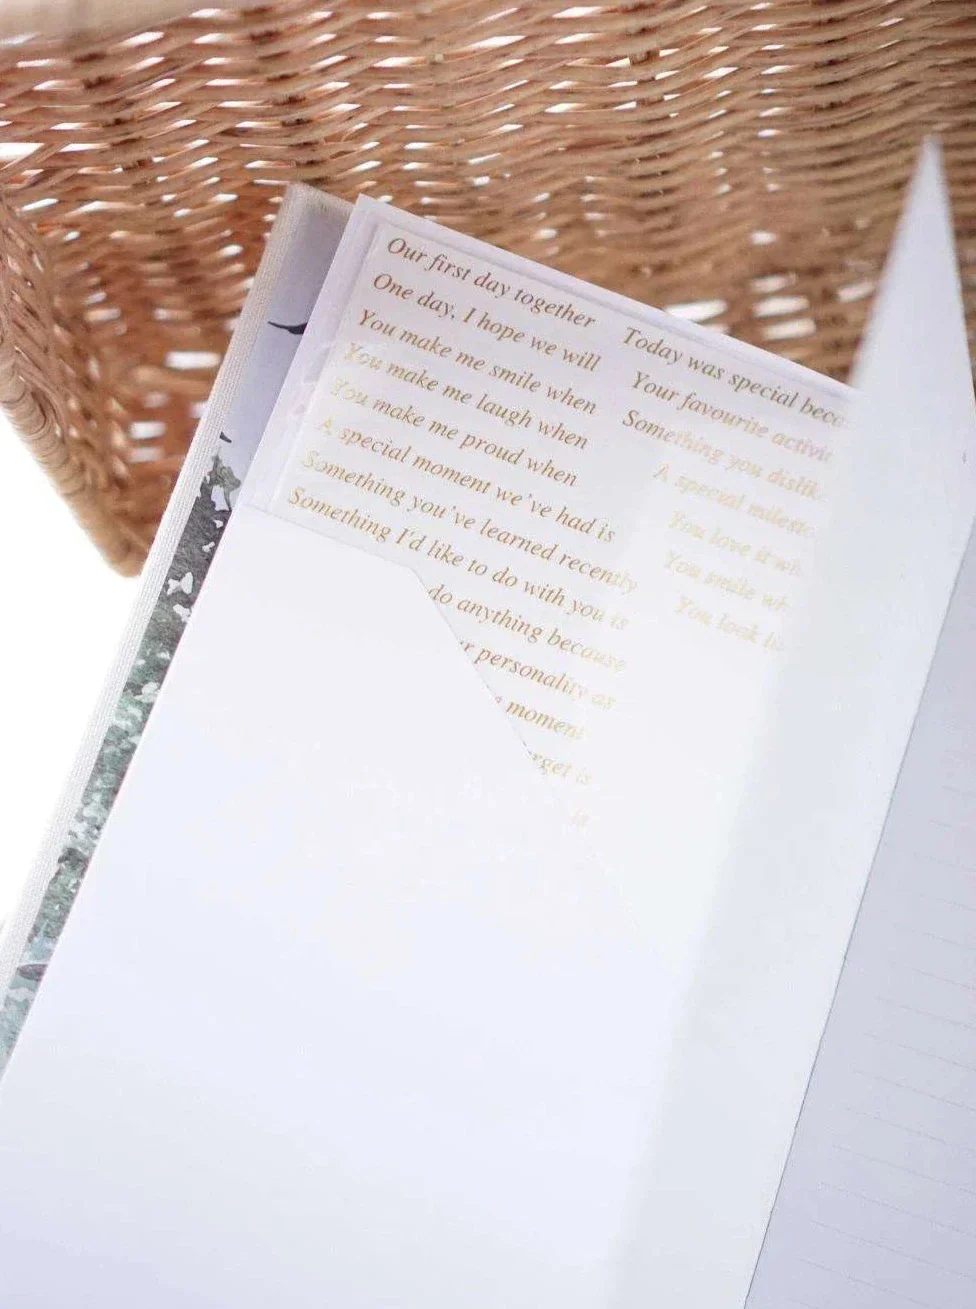 Our first day together
One day, I hope we will
You make me smile when
You make me laugh when
You make me proud when
A special moment we've had is
Something you've learned recently
Something I'd like to do with you is
do anything because
personality as
moment
is
is
Today was special
Your favourite
Something you
A special
You love it
You smile
You look